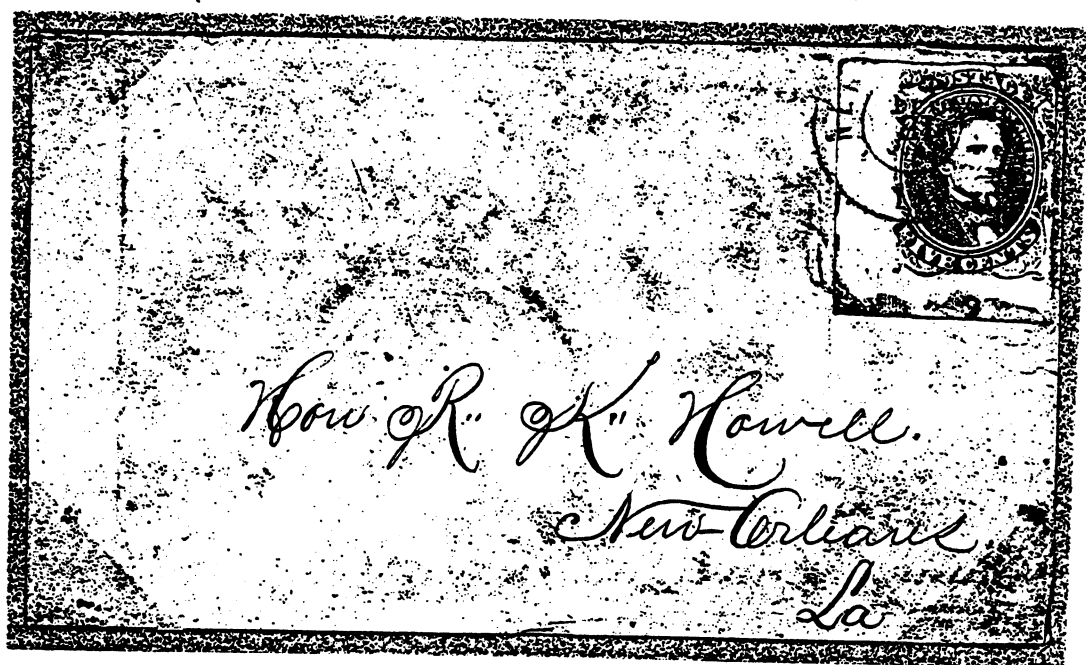 POSTAGE
FIVE CENTS
Hon R" K" Howell.
New-Orleans
La